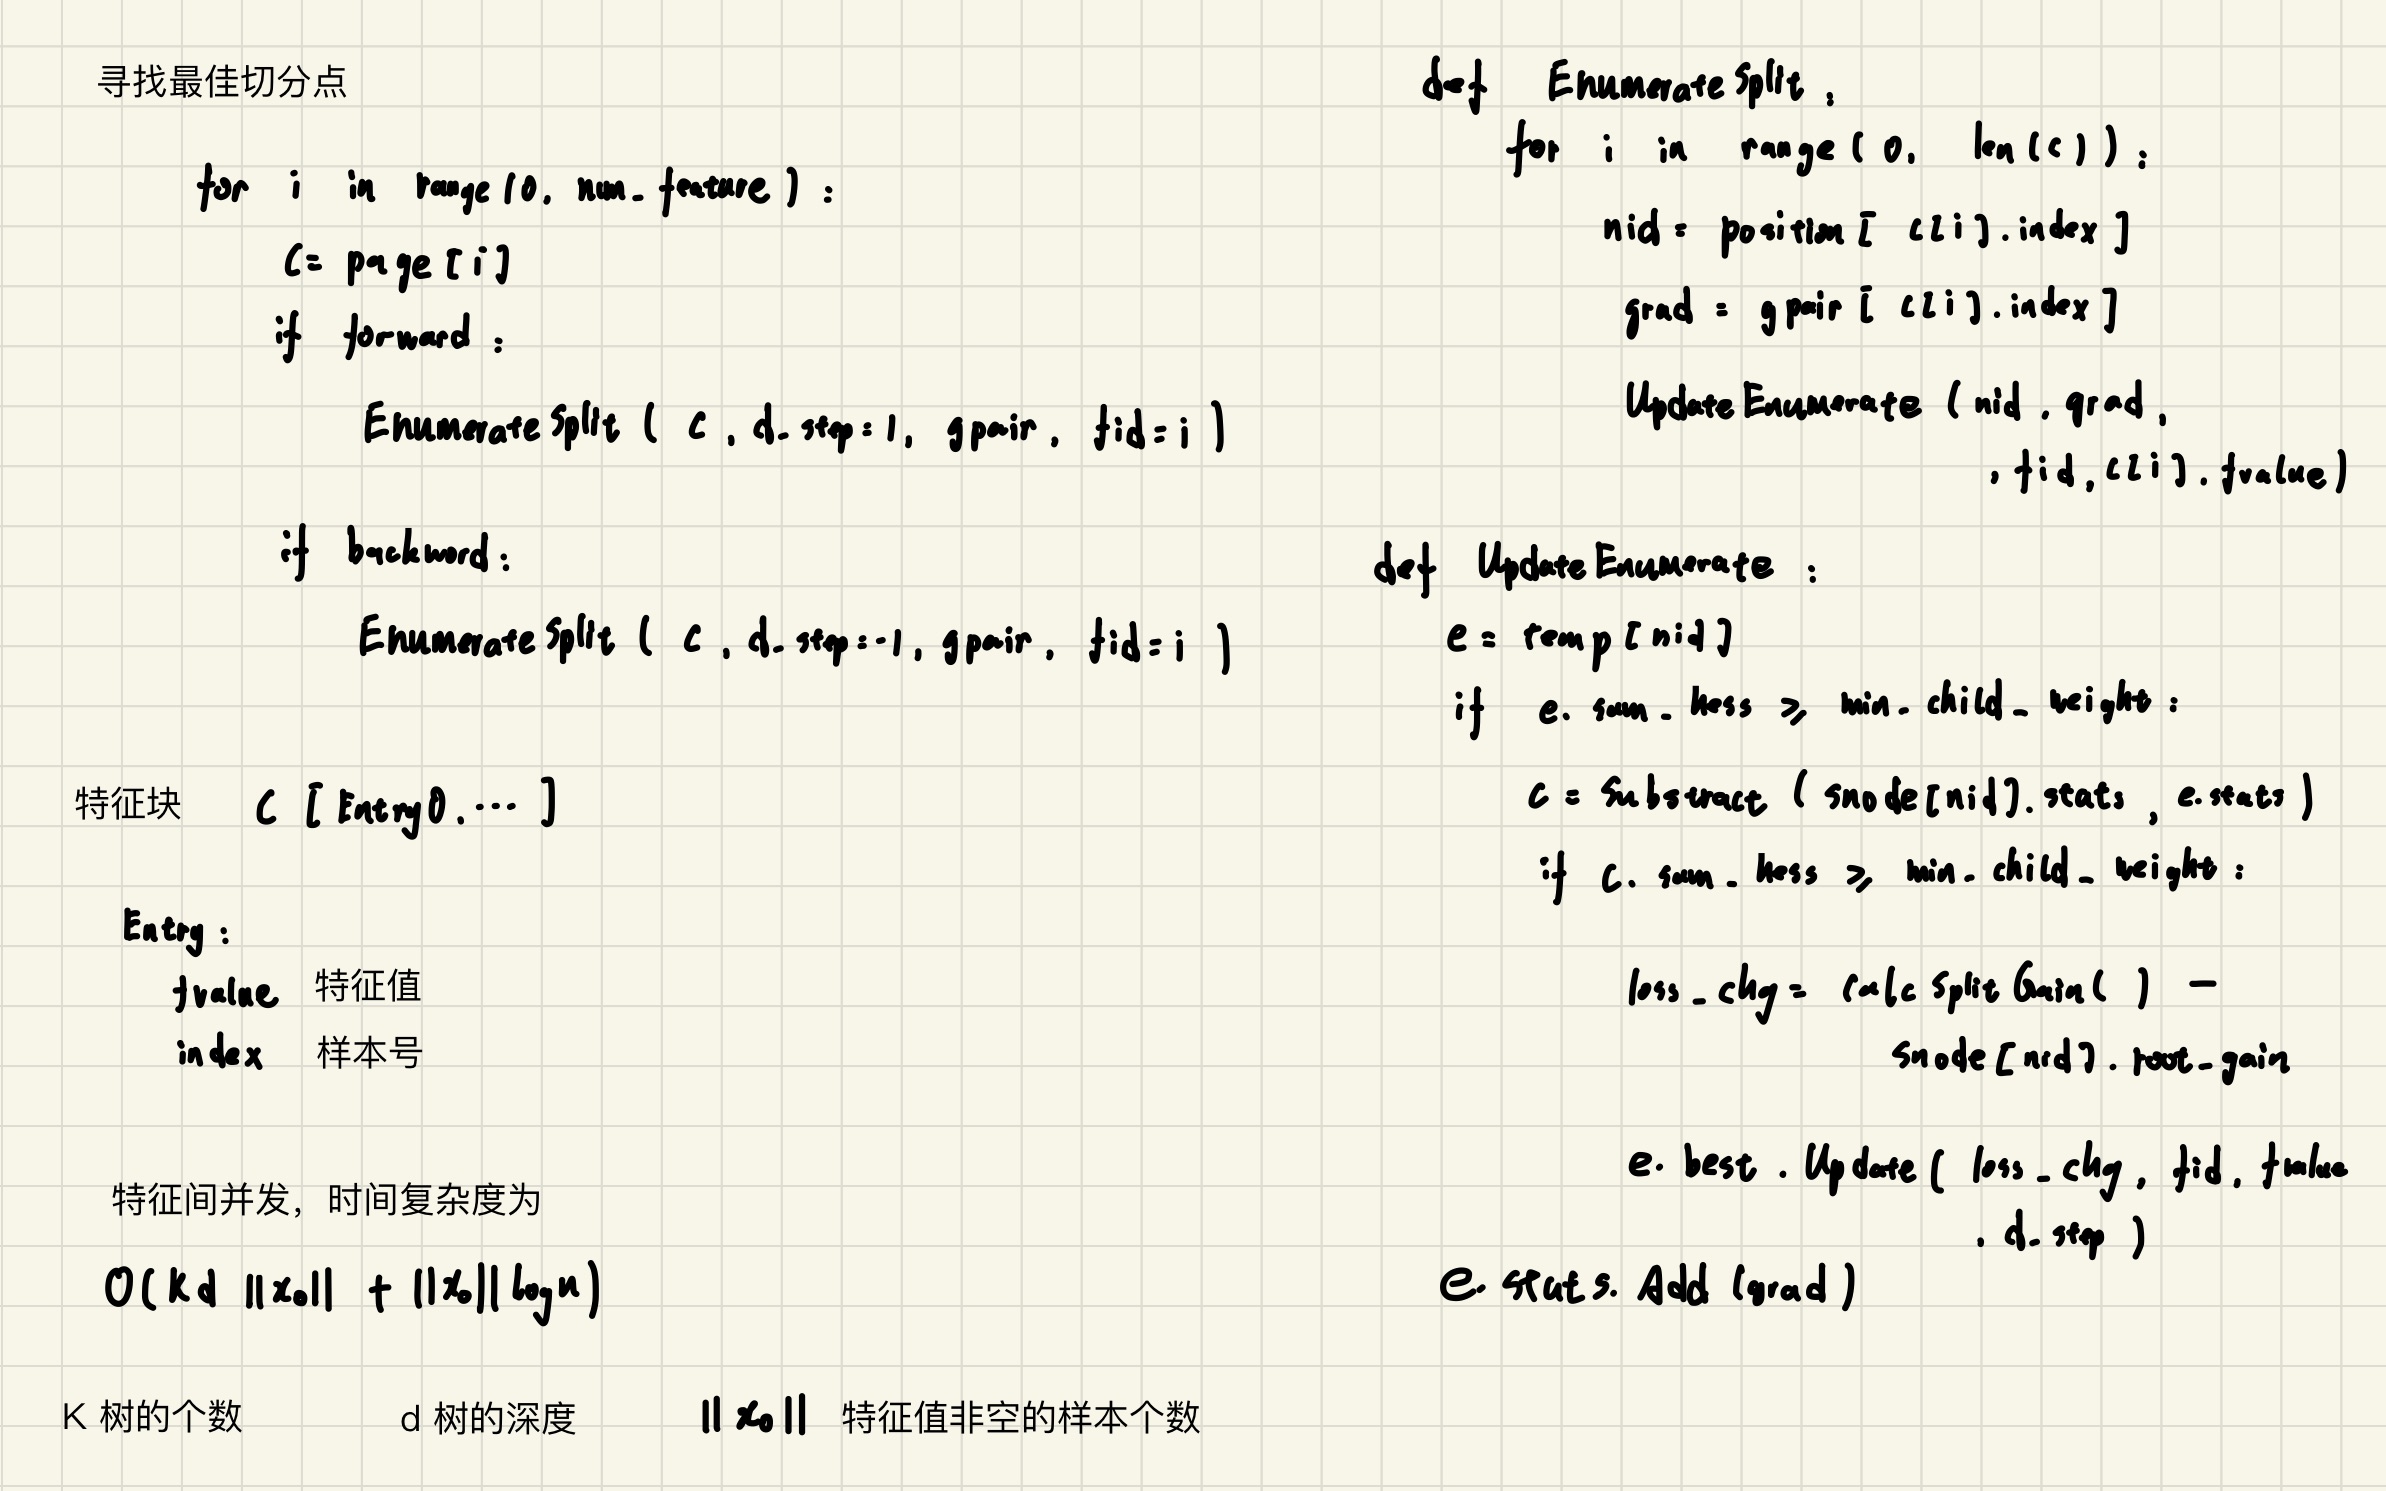 寻找最佳切分点
for i in range(0, num_feature):
C= page[i]
if forward:
EnumerateSplit( c, d_step=1, gpair, fid=i )
if backword:
EnumerateSplit( c, d_step=-1, gpair, fid=i )
特征块 C [Entry0, ... ]
Entry:
fvalue 特征值
index 样本号
特征间并发，时间复杂度为
O(Kd ||x₀|| + ||x₀||logn)
K 树的个数 d 树的深度 ||x₀|| 特征值非空的样本个数
def EnumerateSplit:
for i in range(0, len(c)):
nid = position[ c[i].index ]
grad = gpair[ c[i].index]
UpdateEnumerate (nid, grad,
, fid, c[i].fvalue)
def UpdateEnumerate :
e = temp[nid]
if e.sum_hess ⩾ min_child_weight:
c = Substract (snode[nid].stats, e.stats)
if c.sum_hess ⩾ min_child_weight:
loss_chg = calcSplitGain( ) -
snode[nid].root_gain
e.best.Update( loss_chg, fid, fvalue
, d_step )
e.stats.Add(grad)